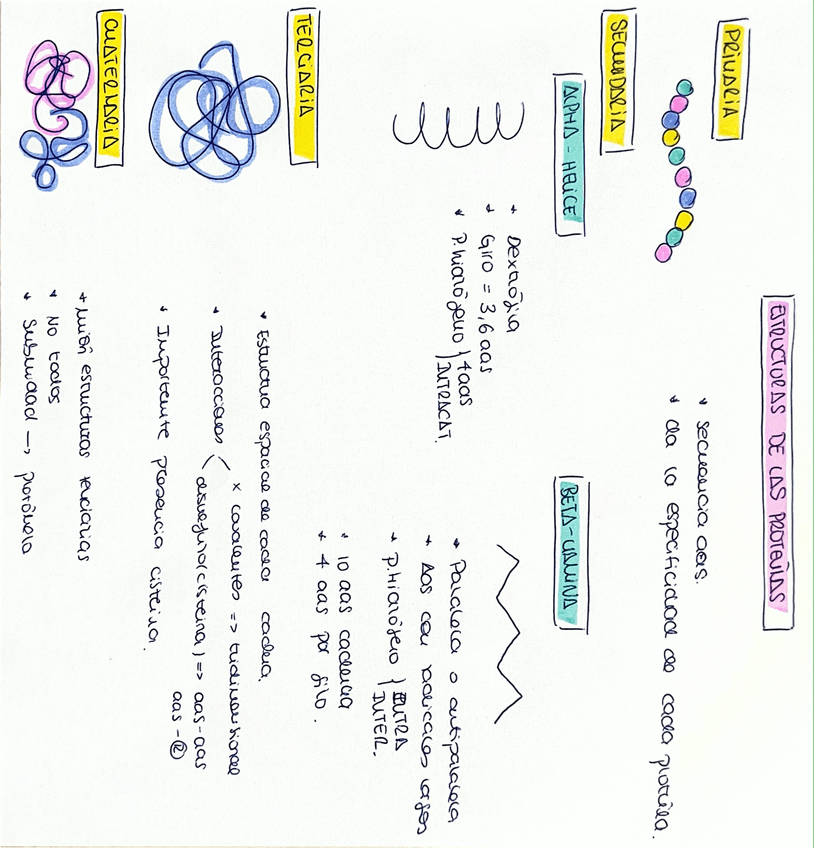 ESTRUCTURAS DE LAS PROTEÍNAS
PRIMARIA
* secuencia aas.
* da la especificidad de cada proteína.
SECUNDARIA
ALPHA-HELICE
* Dextrógira
* Giro = 3,6 aas
* P. hidrógeno } 4 aas
INTRACAT.
BETA-LAMINA
* Paralela o antiparalela
* Aas con radicales largos
* P. hidrógeno } INTRA
INTER.
* 10 aas cadena
* 4 aas por filo.
TERCIARIA
* Estructura espacial de cada cadena.
* Interacciones
x covalentes => tridimensional
disulfuro (cisteína) => aas-aas
aas-R
* Importante presencia cisteína.
CUATERNARIA
* unión estructuras terciarias
* No todas
* Subunidad → protómero